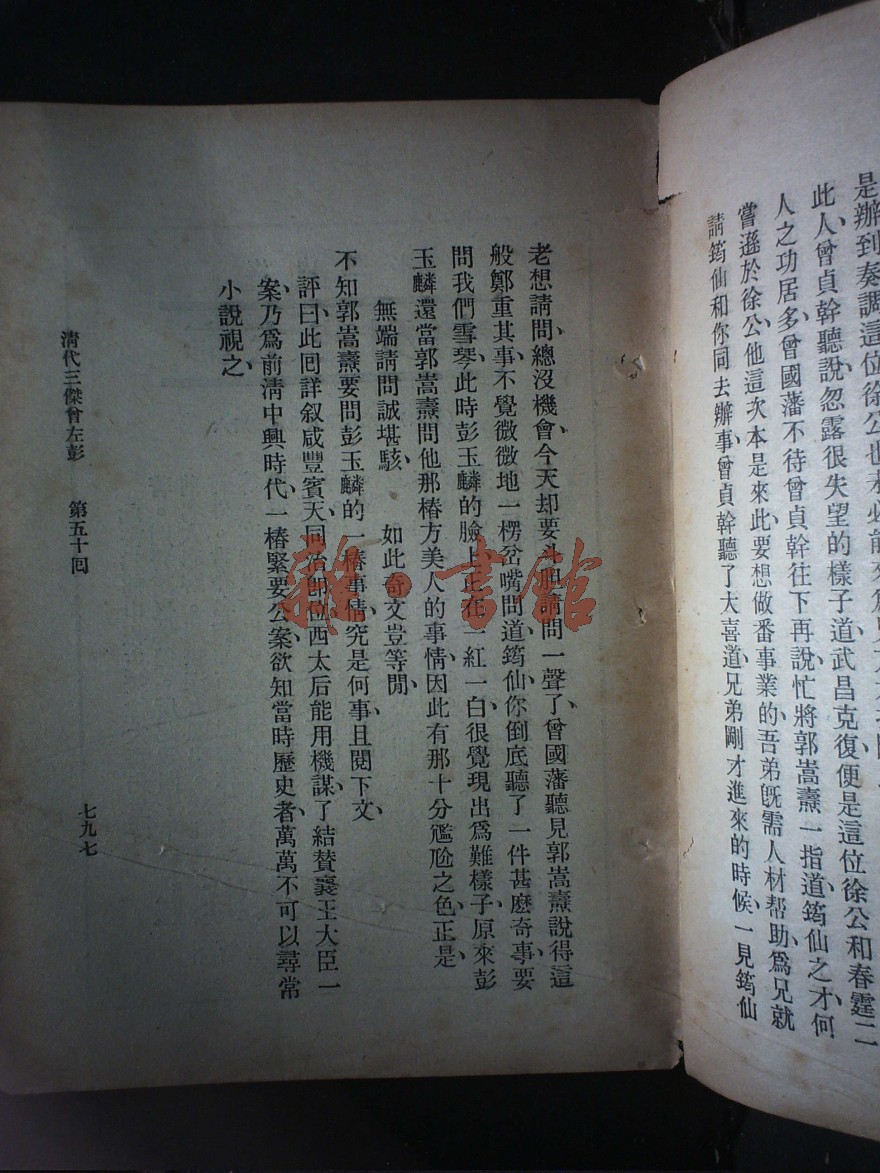 是辦到奏調這位徐公也未必能來
此人曾貞幹聽說忽露很失望的樣子道武昌克復便是這位徐公和春霆二
人之功居多曾國藩不待曾貞幹往下再說忙將郭嵩燾一指道筠仙之才何
嘗遜於徐公他這次本是來此要想做番事業的吾弟旣需人材帮助爲兄就
請筠仙和你同去辦事曾貞幹聽了大喜道兄弟剛才進來的時候一見筠仙
老想請問總沒機會今天却要斗胆請問一聲了曾國藩聽見郭嵩燾說得這
般鄭重其事不覺微微地一楞岔嘴問道筠仙你倒底聽了一件甚麽奇事要
問我們雪琴此時彭玉麟的臉上正在一紅一白很覺現出爲難樣子原來彭
玉麟還當郭嵩燾問他那樁方美人的事情因此有那十分尷尬之色正是
無端請問誠堪駭　如此奇文豈等閒
不知郭嵩燾要問彭玉麟的一樁事情究是何事且閱下文
評曰此囘詳叙咸豐賓天同治卽位西太后能用機謀了結贊襄王大臣一
案乃爲前淸中興時代一樁緊要公案欲知當時歷史者萬萬不可以尋常
小說視之
淸代三傑曾左彭　第五十囘
七九七
雜·書館